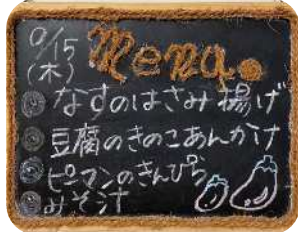 9/15 Menu
(木)
なすのはさみ揚げ
豆腐のきのこあんかけ
ピーマンのきんぴら
みそ汁